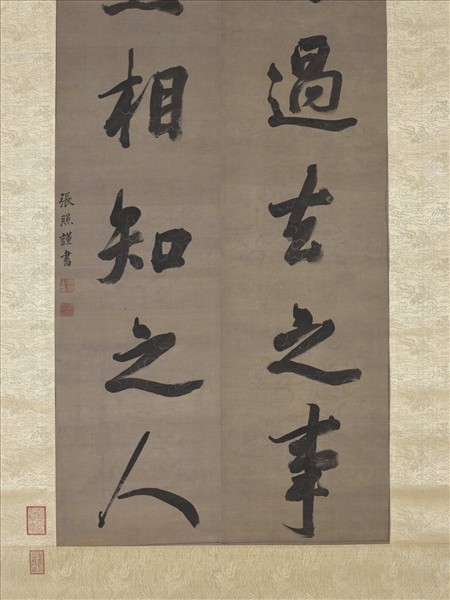 過去之事
相知之人
張照謹書